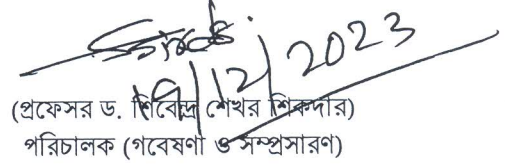 19/12/2023
(প্রফেসর ড. শিবেন্দ্র শেখর শিকদার)
পরিচালক (গবেষণা ও সম্প্রসারণ)